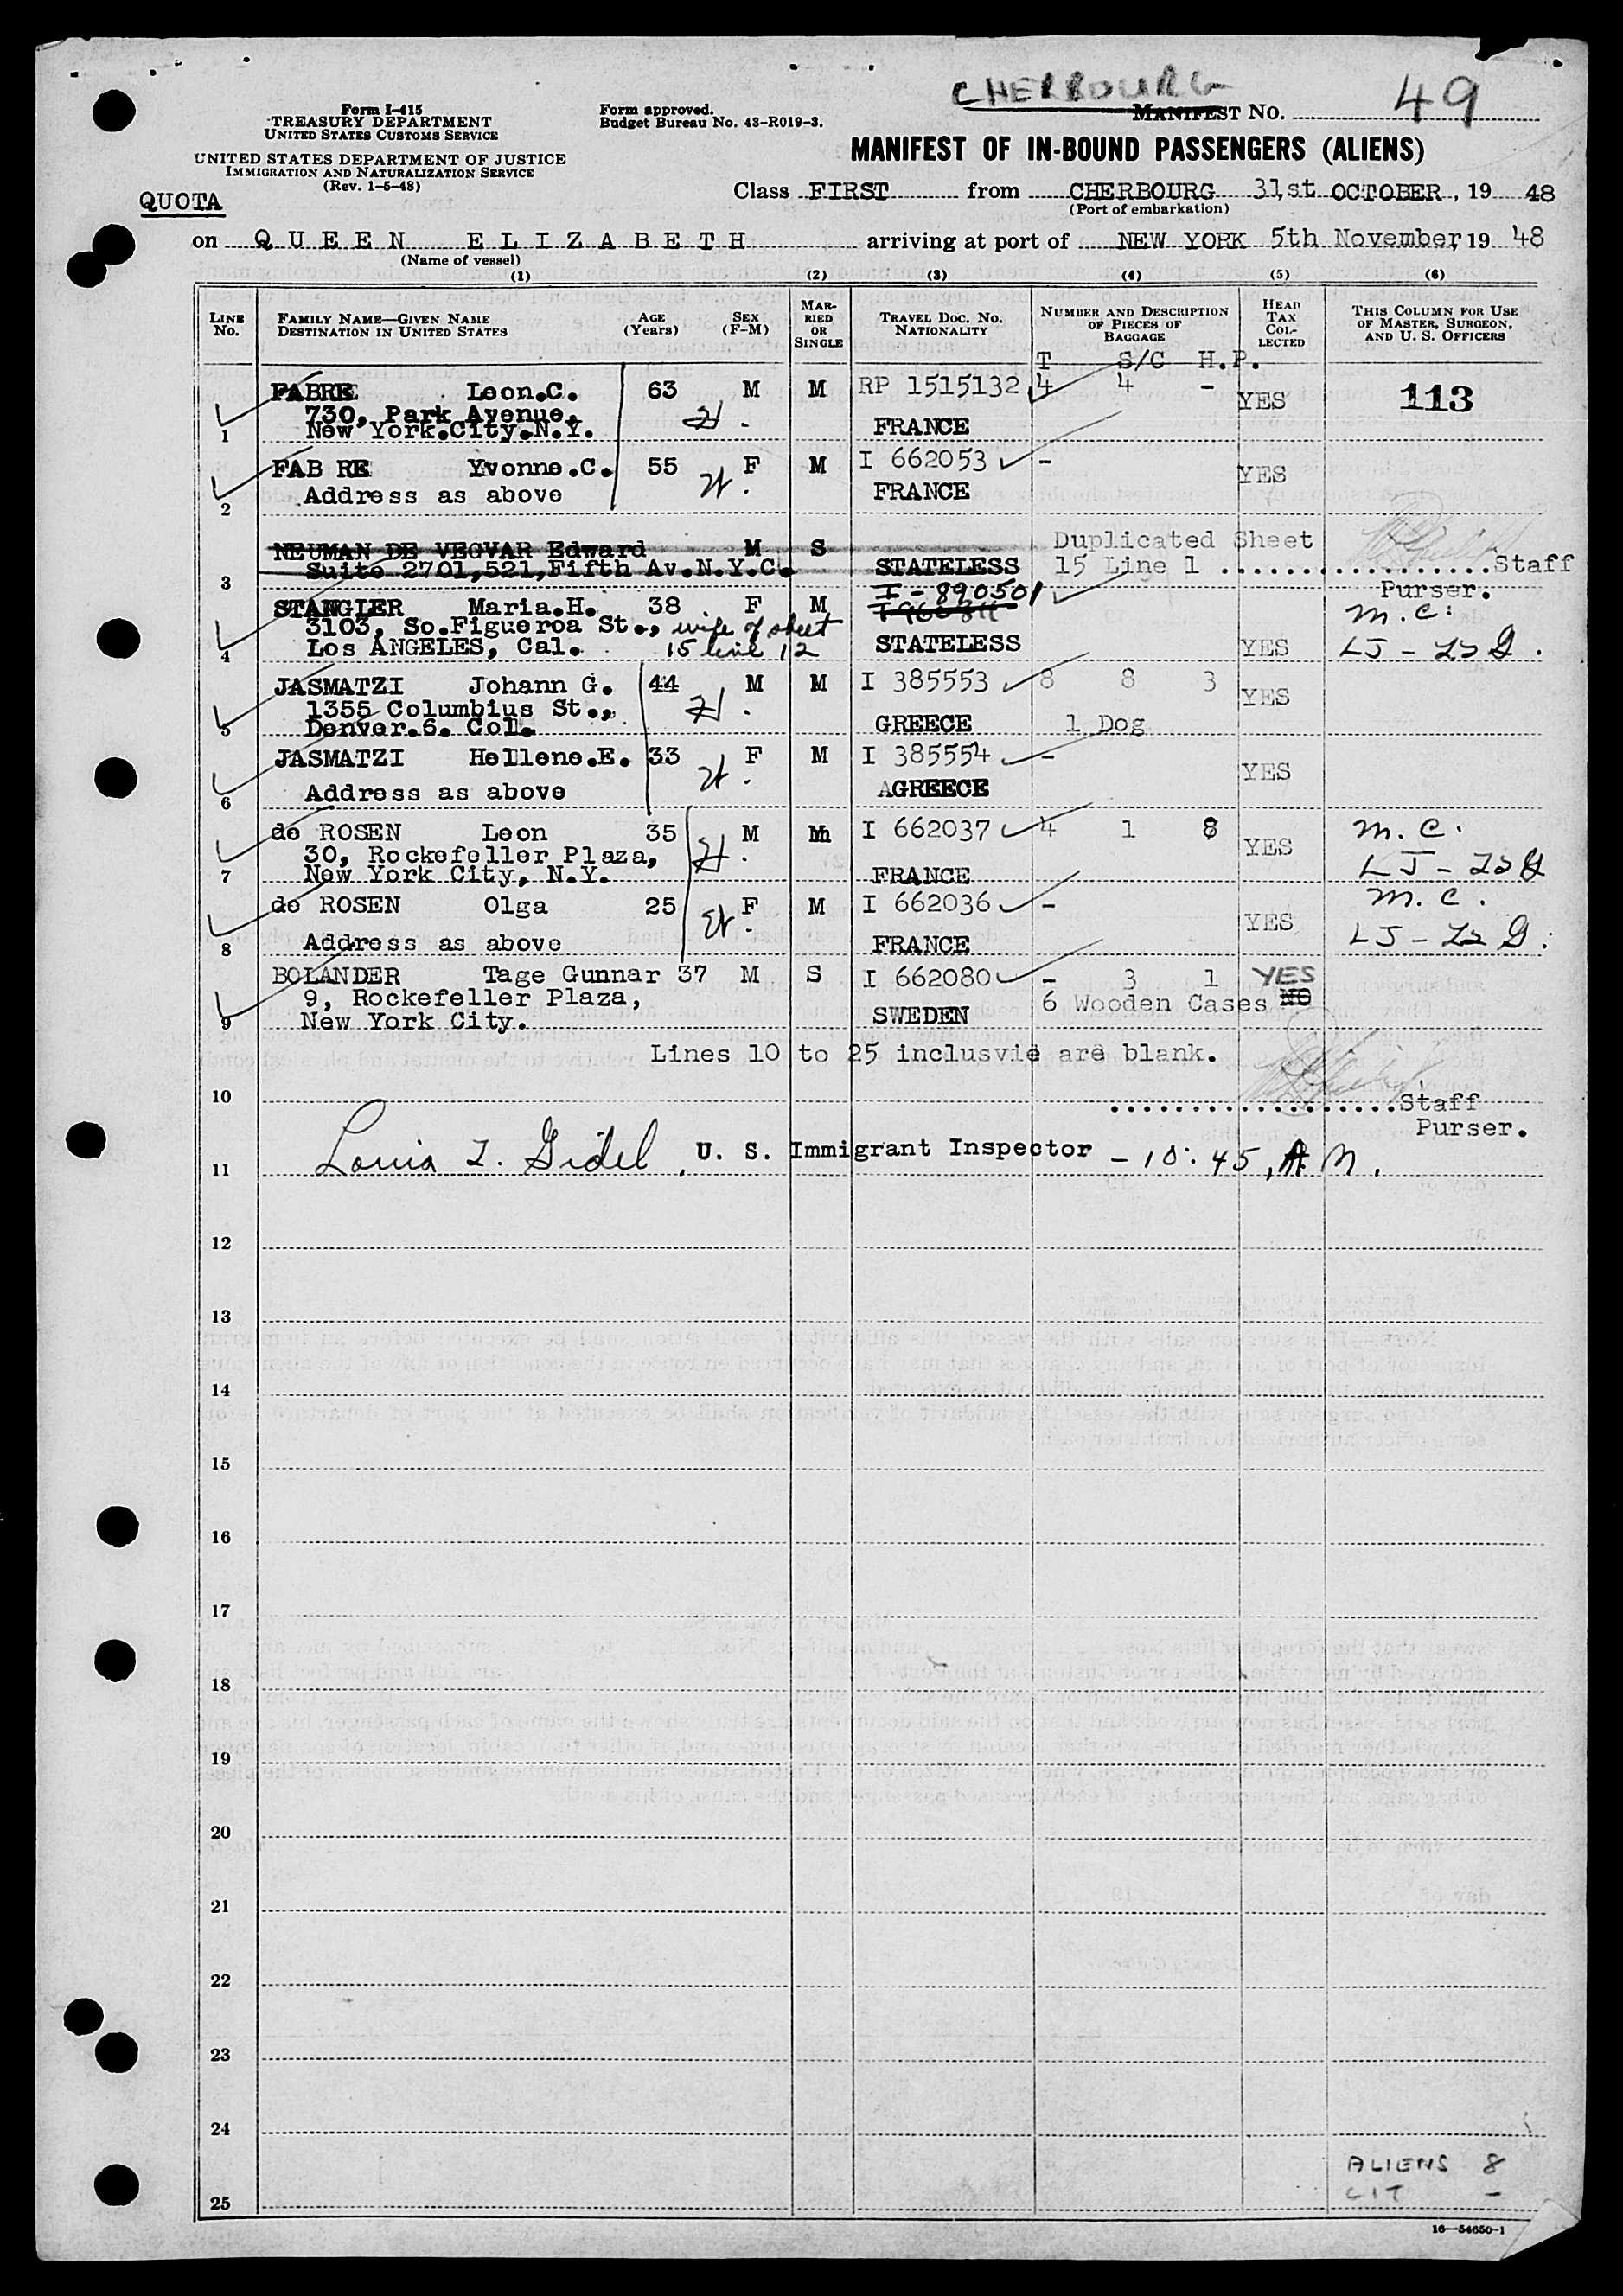 CHERBOURG
Form I-415
TREASURY DEPARTMENT
UNITED STATES CUSTOMS SERVICE
UNITED STATES DEPARTMENT OF JUSTICE
IMMIGRATION AND NATURALIZATION SERVICE
(Rev. 1-5-48)
QUOTA
Form approved.
Budget Bureau No. 43-R019-3.
MANIFEST NO. 49
MANIFEST OF IN-BOUND PASSENGERS (ALIENS)
Class FIRST from CHERBOURG 31st OCTOBER, 19 48
(Port of embarkation)
on QUEEN ELIZABETH arriving at port of NEW YORK 5th November, 19 48
(Name of vessel)
(1) (2) (3) (4) (5) (6)
LINE NO.
FAMILY NAME—GIVEN NAME
DESTINATION IN UNITED STATES
AGE (Years)
SEX (F-M)
MARRIED OR SINGLE
TRAVEL DOC. NO. NATIONALITY
NUMBER AND DESCRIPTION OF PIECES OF BAGGAGE
HEAD TAX COLLECTED
THIS COLUMN FOR USE OF MASTER, SURGEON, AND U. S. OFFICERS
T S/C H.P.
FABRE Leon.C. 63 M M RP 1515132 4 4 - YES 113
730, Park Avenue,
1 New York.City.N.Y. FRANCE
FAB RE Yvonne.C. 55 F M I 662053 - YES
Address as above FRANCE
2
NEUMAN DE VEGVAR Edward M S Duplicated Sheet
3 Suite 2701,521,Fifth Av.N.Y.C. STATELESS 15 Line 1 ..................Staff
Purser.
I-890501
STANGLER Maria.H. 38 F M M.C.
3103, So.Figueroa St., wife of sheet
4 Los ANGELES, Cal. 15 line 12 STATELESS YES
JASMATZI Johann G. 44 M M I 385553 8 8 3 YES
1355 Columbius St.,
5 Denver.6. Col. GREECE 1 Dog
JASMATZI Hellene.E. 33 F M I 385554 - YES
6 Address as above AGREECE
de ROSEN Leon 35 M M I 662037 4 1 8 YES M.C.
30, Rockefeller Plaza,
7 New York City, N.Y. FRANCE
de ROSEN Olga 25 F M I 662036 - YES M.C.
8 Address as above FRANCE
BOLANDER Tage Gunnar 37 M S I 662080 - 3 1 YES
9, Rockefeller Plaza, 6 Wooden Cases NO
9 New York City. SWEDEN
Lines 10 to 25 inclusvie are blank.
10 ..................Staff
Purser.
11 Louis I. Gidel, U. S. Immigrant Inspector - 10:45, A.M.
12
13
14
15
16
17
18
19
20
21
22
23
24
ALIENS 8
CIT -
25
16—54650-1